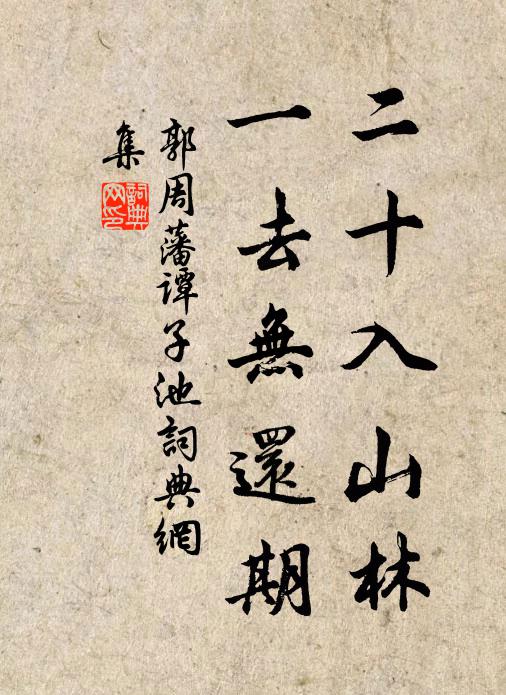 二十入山林
一去無還期
郭周藩譚子池詞典網
集
詞典網印